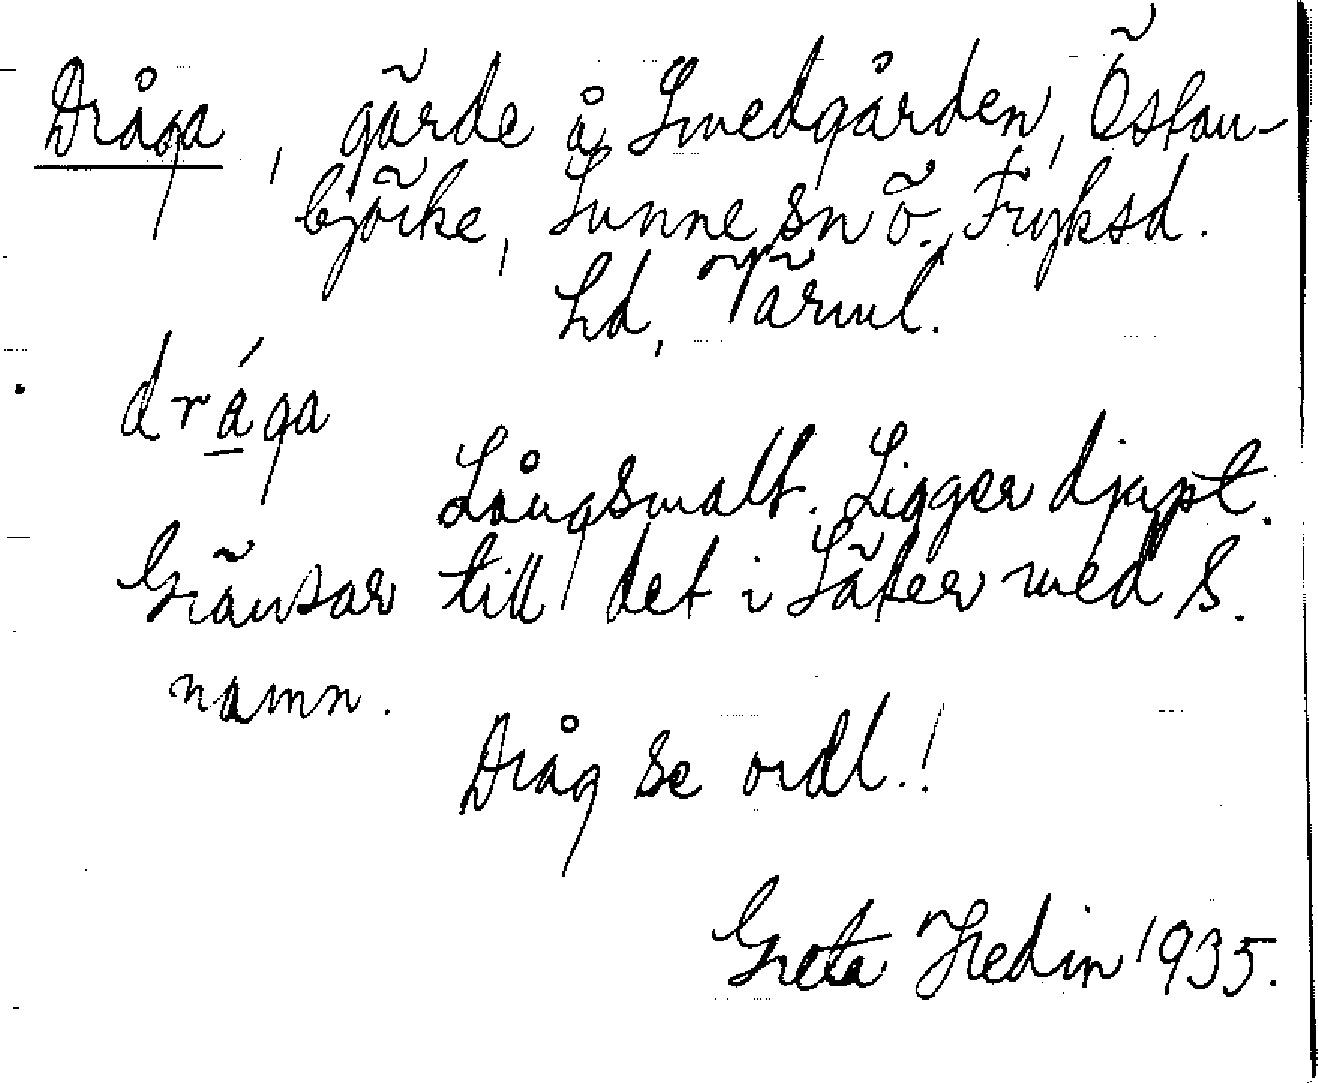 Dråga, gärde å Smedgården, Östan-
björke, Sunne sn Ö. Fryksd.
hd, Värml.
drága
Långsmalt. Ligger djupt.
Gränsar till det i Säter med s.
namn.
Dråg se ordl.!
Greta Hedin 1935.